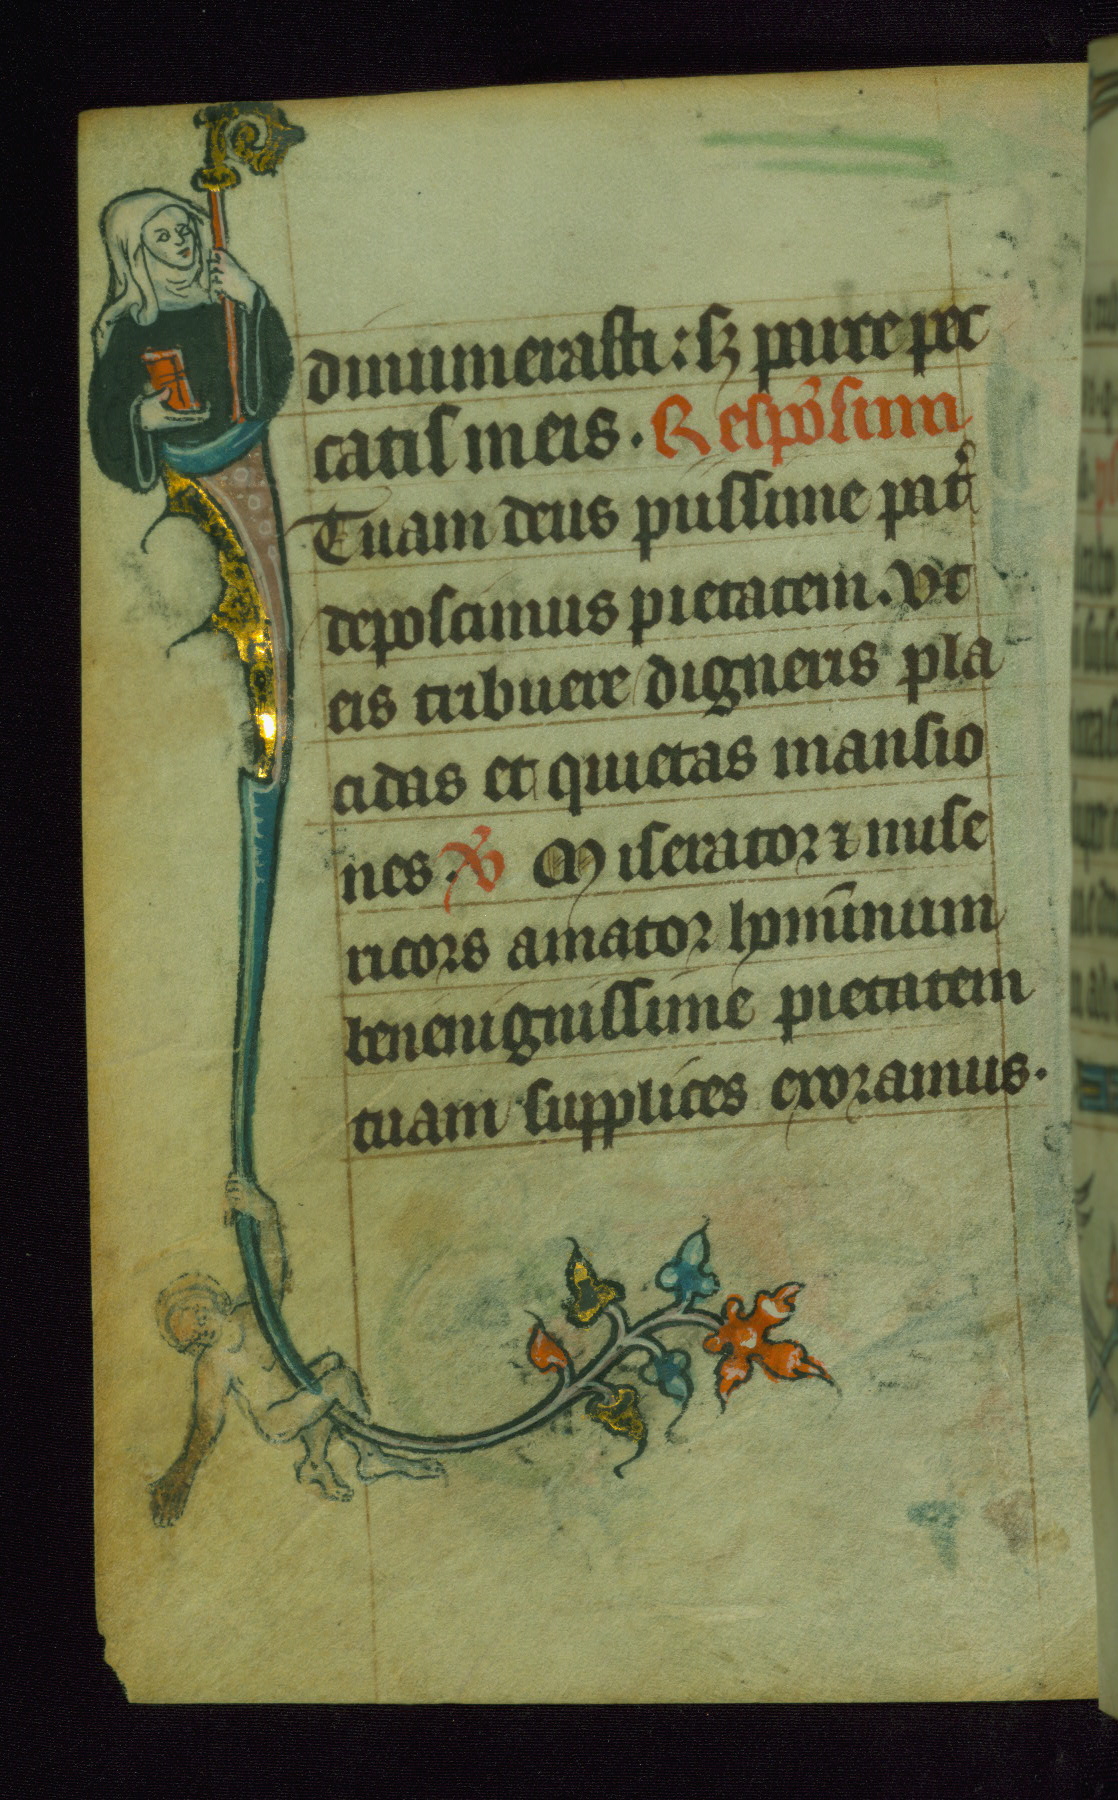 dinumerasti: sꝫ parce pec
catis meis. Respōsium
Tuam deus piissime pat̾
deposcimus pietatem. Vt
eis tribuere digneris pla
cidas et quietas mansio
nes. V̾ Miserator ⁊ mise
ricors amator hominum
benenignissime pietatem
tuam supplices exoramus.